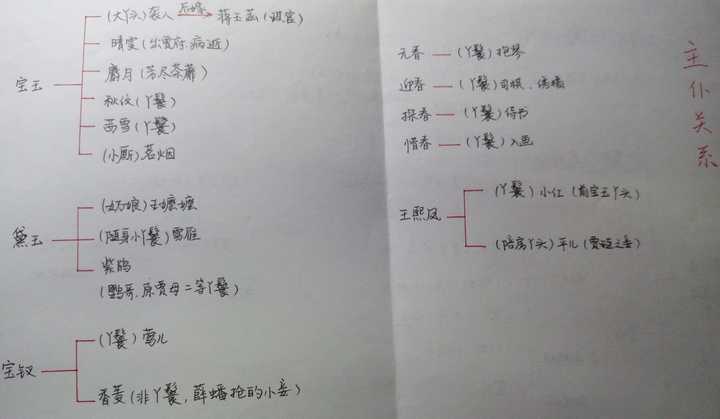 主仆关系
宝玉
(大丫头)袭人 后嫁 蒋玉菡(戏官)
晴雯(出贾府,病逝)
麝月(苦尽荼蘼)
秋纹(丫鬟)
茜雪(丫鬟)
(小厮)茗烟
黛玉
(奶娘)王嬷嬷
(随身小丫鬟)雪雁
紫鹃
(鹦哥,原贾母二等丫鬟)
宝钗
(丫鬟)莺儿
香菱(非丫鬟,薛蟠抢的小妾)
元春 (丫鬟)抱琴
迎春 (丫鬟)司棋、绣橘
探春 (丫鬟)侍书
惜春 (丫鬟)入画
王熙凤
(丫鬟)小红(前宝玉丫头)
(陪房丫头)平儿(贾琏之妾)